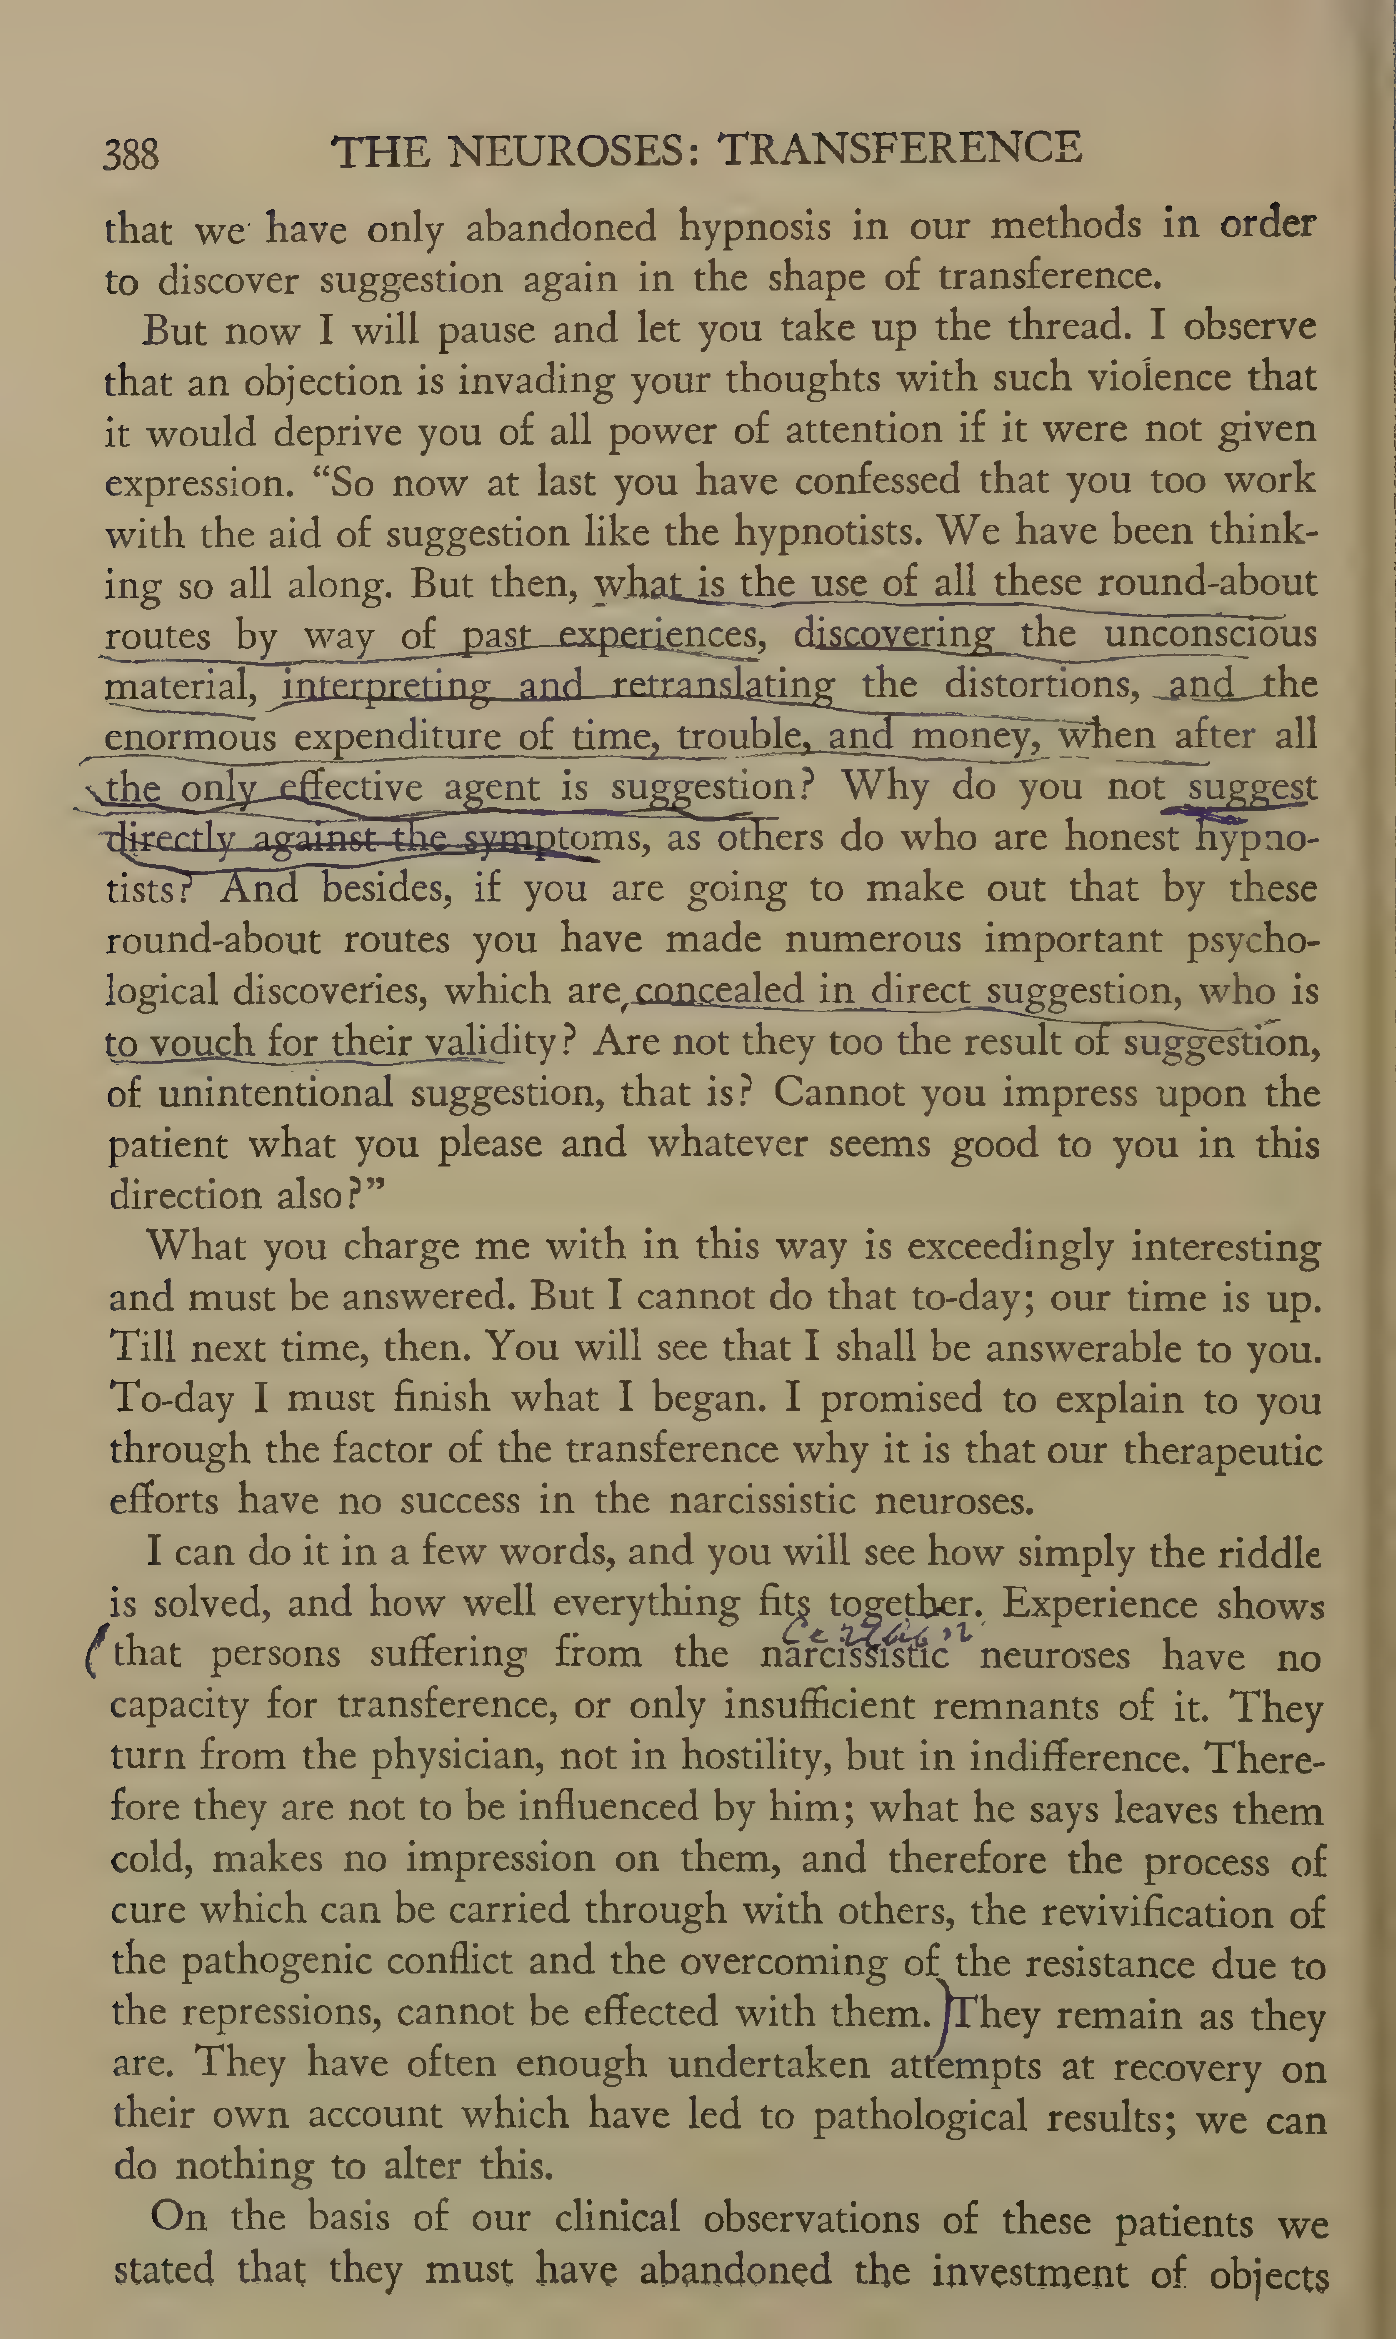 388 THE NEUROSES: TRANSFERENCE
that we have only abandoned hypnosis in our methods in order
to discover suggestion again in the shape of transference.
But now I will pause and let you take up the thread. I observe
that an objection is invading your thoughts with such violence that
it would deprive you of all power of attention if it were not given
expression. “So now at last you have confessed that you too work
with the aid of suggestion like the hypnotists. We have been think-
ing so all along. But then, what is the use of all these round-about
routes by way of past experiences, discovering the unconscious
material, interpreting and retranslating the distortions, and the
enormous expenditure of time, trouble, and money, when after all
the only effective agent is suggestion? Why do you not suggest
directly against the symptoms, as others do who are honest hypno-
tists? And besides, if you are going to make out that by these
round-about routes you have made numerous important psycho-
logical discoveries, which are concealed in direct suggestion, who is
to vouch for their validity? Are not they too the result of suggestion,
of unintentional suggestion, that is? Cannot you impress upon the
patient what you please and whatever seems good to you in this
direction also?”
What you charge me with in this way is exceedingly interesting
and must be answered. But I cannot do that to-day; our time is up.
Till next time, then. You will see that I shall be answerable to you.
To-day I must finish what I began. I promised to explain to you
through the factor of the transference why it is that our therapeutic
efforts have no success in the narcissistic neuroses.
I can do it in a few words, and you will see how simply the riddle
is solved, and how well everything fits together. Experience shows
(that persons suffering from the narcissistic neuroses have no
capacity for transference, or only insufficient remnants of it. They
turn from the physician, not in hostility, but in indifference. There-
fore they are not to be influenced by him; what he says leaves them
cold, makes no impression on them, and therefore the process of
cure which can be carried through with others, the revivification of
the pathogenic conflict and the overcoming of the resistance due to
the repressions, cannot be effected with them.) They remain as they
are. They have often enough undertaken attempts at recovery on
their own account which have led to pathological results; we can
do nothing to alter this.
On the basis of our clinical observations of these patients we
stated that they must have abandoned the investment of objects